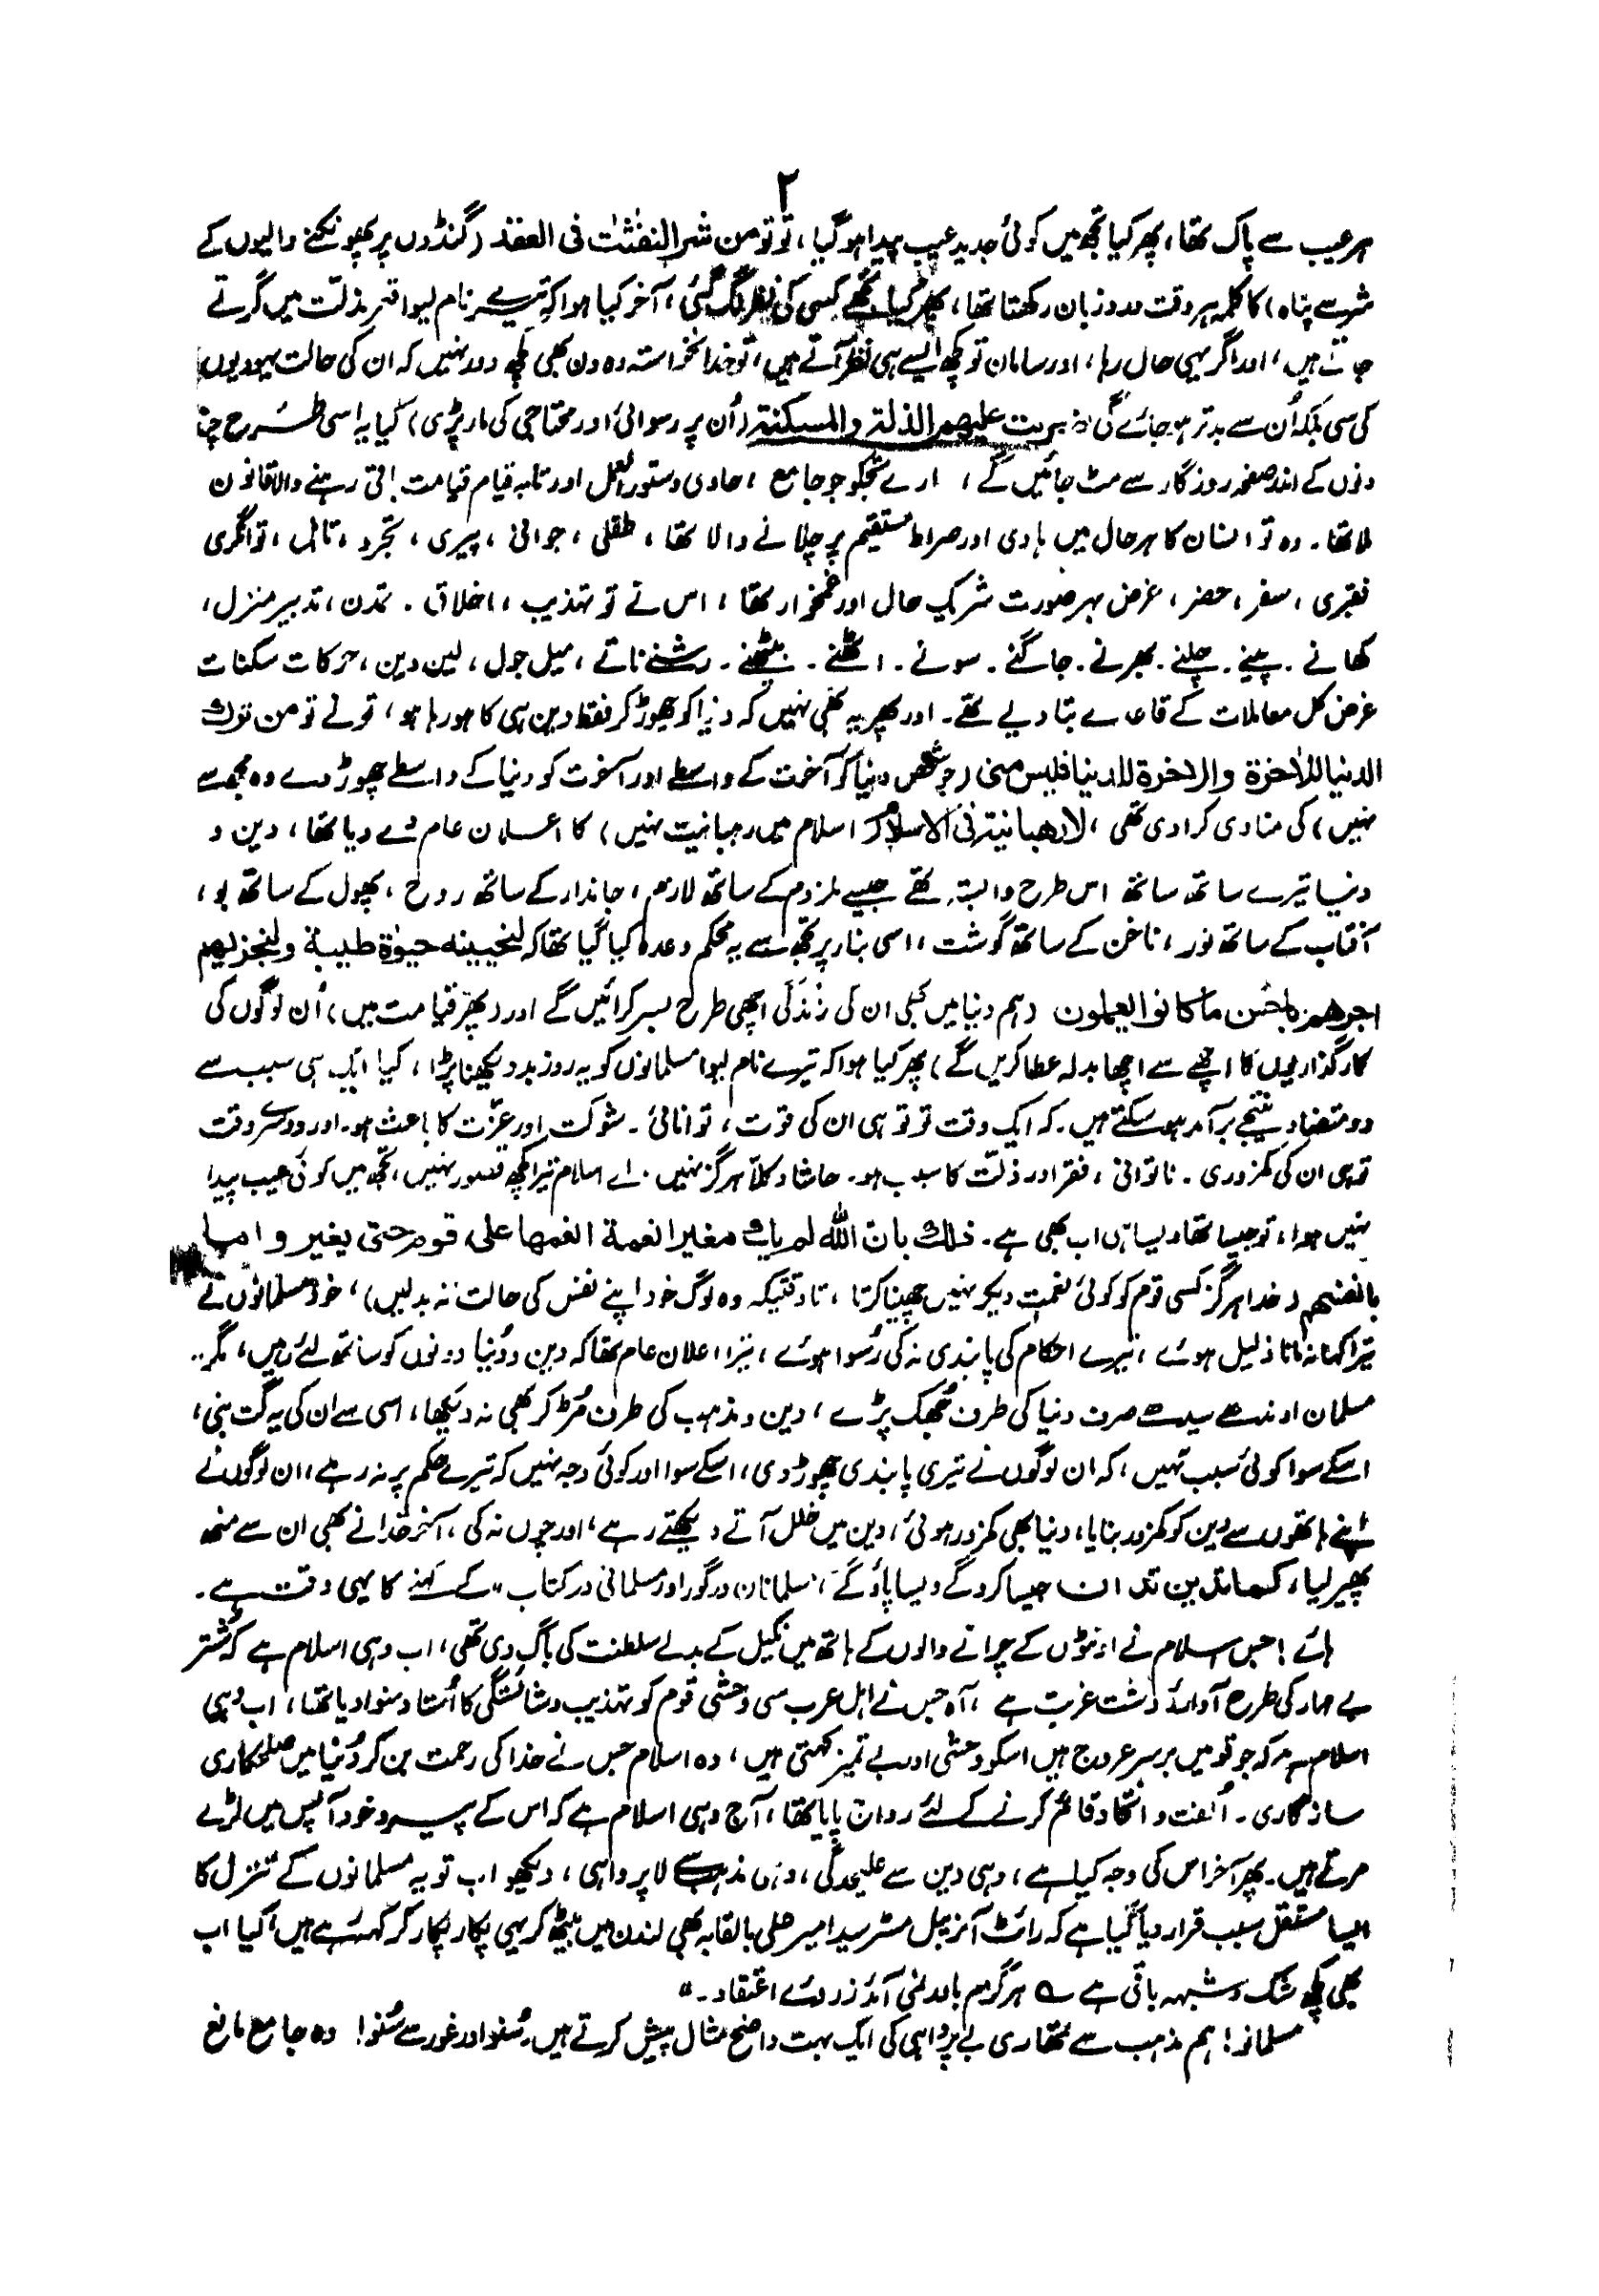 ۲
ہر عیب سے پاک تھا، پھر کیا تجھ میں کوئی جدید عیب پیدا ہو گیا، تو تو من شر النفٰثٰت فی العقد (گنڈوں پر پھونکنے والیوں کے
شر سے پناہ) کا کلمہ ہر وقت ورد زبان رکھتا تھا، پھر کیا تجھے کسی کی نظر لگ گئی، آخر کیا ہوا کہ تیرے نام لیوا قعر مذلت میں گرتے
جاتے ہیں، اور اگر یہی حال رہا، اور سامان تو کچھ ایسے ہی نظر آتے ہیں، تو خدانخواستہ وہ دن بھی کچھ دور نہیں کہ ان کی حالت یہودیوں
کی سی بلکہ اُن سے بدتر ہو جائے گی ضربت علیھم الذلۃ والمسکنۃ (اُن پر رسوائی اور محتاجی کی مار پڑی) کیا یہ اسی طرح چند
دنوں کے اندر صفحہ روزگار سے مٹ جائیں گے، ارے تجکو جو جامع، حاوی دستور العمل اور تابہ قیام قیامت باقی رہنے والا قانون
ملا تھا۔ وہ تو انسان کا ہر حال میں ہادی اور صراط مستقیم پر چلانے والا تھا، طفلی، جوانی، پیری، تجرد، تاہل، توانگری
فقیری، سفر، حضر، غرض بہر صورت شریک حال اور غمخوار تھا، اس نے تو تہذیب، اخلاق۔ تمدن، تدبیر منزل،
کھانے۔ پینے۔ چلنے۔ پھرنے۔ جاگنے۔ سونے۔ اٹھنے۔ بیٹھنے۔ رشتے ناتے، میل جول، لین دین، حرکات سکنات
غرض کل معاملات کے قاعدے بتا دیے تھے۔ اور پھر یہ بھی نہیں کہ دنیا کو چھوڑ کر فقط دین ہی کا ہو رہا ہو، تو نے تو من ترک
الدنیا للاٰخرۃ والاٰخرۃ للدنیا فلیس منی (جو شخص دنیا کو آخرت کے واسطے اور آخرت کو دنیا کے واسطے چھوڑ دے وہ مجھ سے
نہیں) کی منادی کرا دی تھی، لا رھبانیۃ فی الاسلام (اسلام میں رہبانیت نہیں) کا اعلان عام دے دیا تھا، دین و
دنیا تیرے ساتھ ساتھ اس طرح وابستہ تھے جیسے ملزوم کے ساتھ لازم، جاندار کے ساتھ روح، پھول کے ساتھ بو،
آفتاب کے ساتھ نور، ناخن کے ساتھ گوشت، اسی بنا پر تجھ سے یہ محکم وعدہ کیا گیا تھا کہ لنحیینہ حیوٰۃ طیبۃ ولنجزینھم
اجرھم باحسن ما کانوا یعملون (ہم دنیا میں بھی ان کی زندگی اچھی طرح بسر کرائیں گے اور (پھر قیامت میں) اُن لوگوں کی
کارگذاریوں کا اچھے سے اچھا بدلہ عطا کریں گے) پھر کیا ہوا کہ تیرے نام لیوا مسلمانوں کو یہ روز بد دیکھنا پڑا، کیا ایک ہی سبب سے
دو متضاد نتیجے برآمد ہو سکتے ہیں۔ کہ ایک وقت تو تو ہی ان کی قوت، توانائی۔ شوکت اور عزّت کا باعث ہو۔ اور دوسرے وقت
تو ہی ان کی کمزوری۔ ناتوانی، فقر اور ذلّت کا سبب ہو۔ حاشا و کلّا ہرگز نہیں۔ اے اسلام تیرا کچھ قصور نہیں، تجھ میں کوئی عیب پیدا
نہیں ہوا، تو جیسا تھا ویسا ہی اب بھی ہے۔ ذلک بان اللہ لم یک مغیرا نعمۃ انعمھا علی قوم حتی یغیروا ما
بانفسھم (خدا ہرگز کسی قوم کو کوئی نعمت دیکر نہیں چھینا کرتا، تا وقتیکہ وہ لوگ خود اپنے نفس کی حالت نہ بدلیں)، خود مسلمانوں نے
تیرا کہنا نہ مانا ذلیل ہوئے، تیرے احکام کی پابندی نہ کی رُسوا ہوئے، تیرا اعلان عام تھا کہ دین و دُنیا دونوں کو ساتھ لئے رہیں، مگر..
مسلمان اوندھے سیدھے صرف دنیا کی طرف جُھک پڑے، دین و مذہب کی طرف مُڑ کر بھی نہ دیکھا، اسی سے ان کی یہ گت بنی،
اسکے سوا کوئی سبب نہیں، کہ ان لوگوں نے تیری پابندی چھوڑ دی، اسکے سوا اور کوئی وجہ نہیں کہ تیرے حکم پر نہ رہے، ان لوگوں نے
اپنے ہاتھوں سے دین کو کمزور بنایا، دنیا بھی کمزور ہوئی، دین میں خلل آتے دیکھتے رہے، اور چوں نہ کی، آخر خدا نے بھی ان سے منھ
پھیر لیا، کما تدین تدان جیسا کرو گے ویسا پاؤ گے، مسلمانان در گور اور مسلمانی در کتاب" کے کہنے کا یہی وقت ہے۔
ہائے! جس اسلام نے اونٹوں کے چرانے والوں کے ہاتھ میں نکیل کے بدلے سلطنت کی باگ دی تھی، اب وہی اسلام ہے کہ شتر
بے مہار کی طرح آوارۂ دشت غربت ہے، آہ جس نے اہل عرب سی وحشی قوم کو تہذیب و شائستگی کا اُستاد منوا دیا تھا، اب وہی
اسلام ہے کہ جو قومیں برسر عروج ہیں اسکو وحشی اور بے تمیز کہتی ہیں، وہ اسلام جس نے خدا کی رحمت بن کر دُنیا میں صلحکاری
سازگاری۔ اُلفت و اتحاد قائم کرنے کے لئے رواج پایا تھا، آج وہی اسلام ہے کہ اس کے پیرو خود آپس میں لڑے
مرتے ہیں۔ پھر آخر اس کی وجہ کیا ہے، وہی دین سے علیحدگی، وہی مذہب سے لاپرواہی، دیکھو اب تو یہ مسلمانوں کے تنزل کا
ایسا مستقل سبب قرار دیا گیا ہے کہ رائٹ آنریبل مسٹر سید امیر علی بالقابہ بھی لندن میں بیٹھ کر یہی پکار پکار کر کہہ رہے ہیں، کیا اب
بھی کچھ شک و شبہہ باقی ہے ؎ ہرگزم باور نمی آید ز روئے اعتقاد۔"
مسلمانو! ہم مذہب سے تمھاری بے پرواہی کی ایک بہت واضح مثال پیش کرتے ہیں۔ سُنو اور غور سے سُنو! وہ جامع مانع